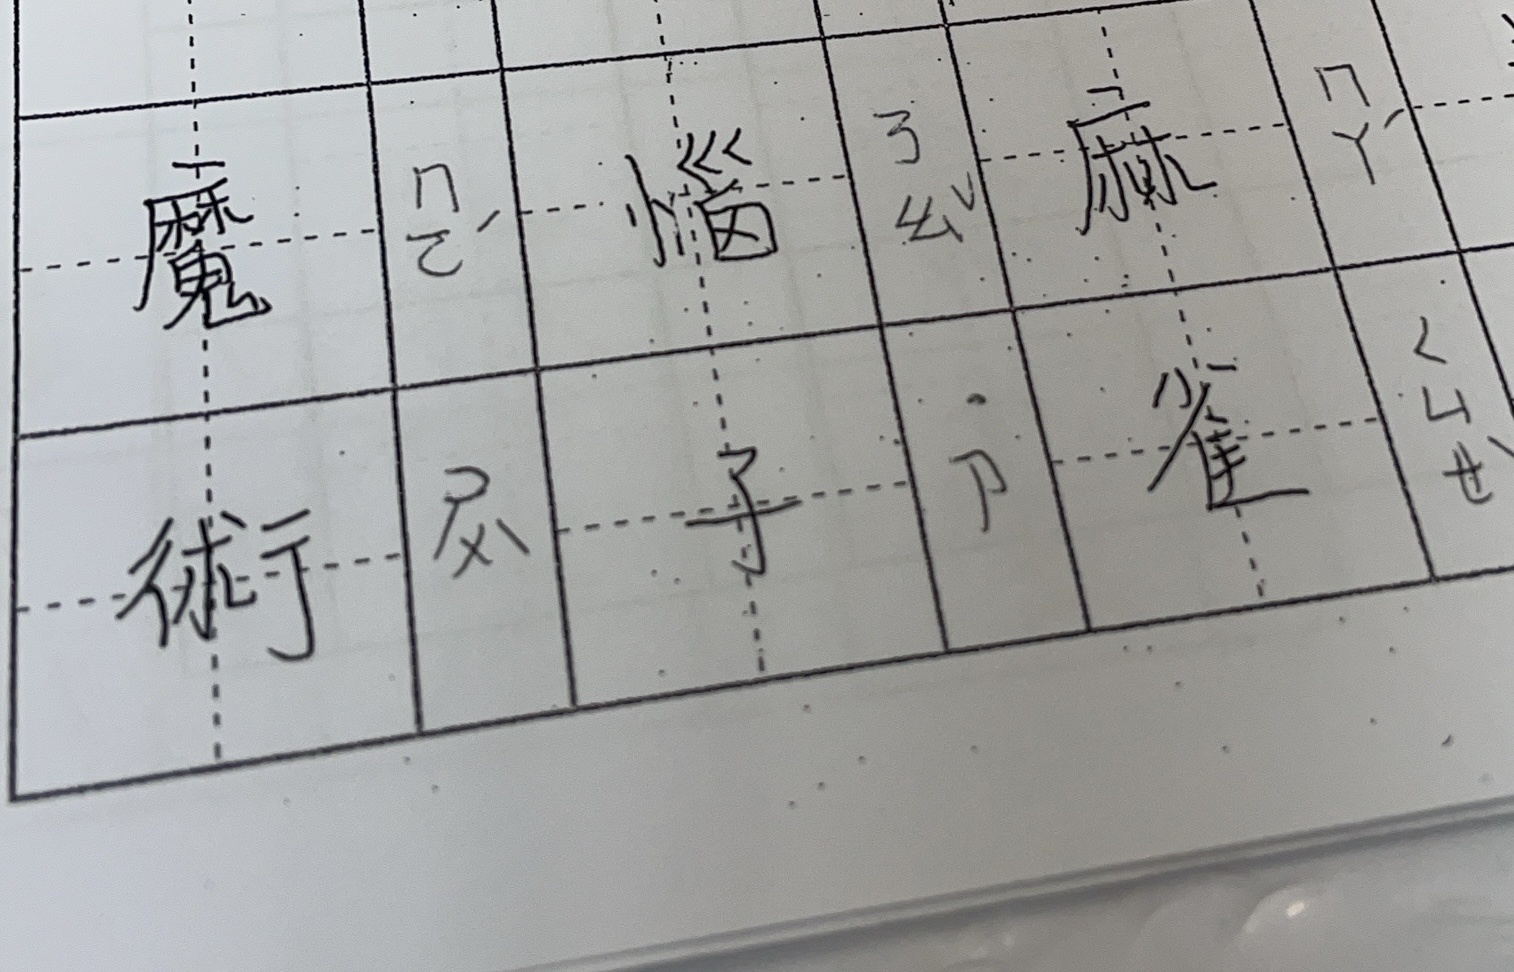 麻雀
ㄇㄚˊ ㄑㄩㄝˋ
惱子
ㄋㄠˇ ˙ㄗ
魔術
ㄇㄛˊ ㄕㄨˋ